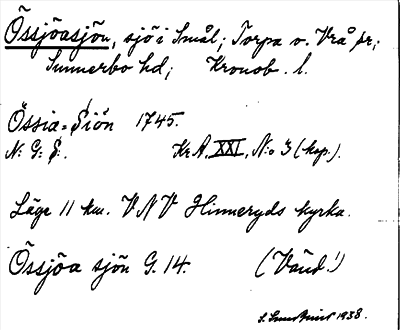 Össjöasjön, sjö i Smål; Torpa o. Vrå pr;
Sunnerbo hd; Kronob. l.
Össia=Siön 1745.
N: G: S: KrA. XXI. N:o 3 (kop).
Läge 11 km. VNV Hinneryds kyrka.
Össjöa sjön G. 14. (Vänd!)
1938.